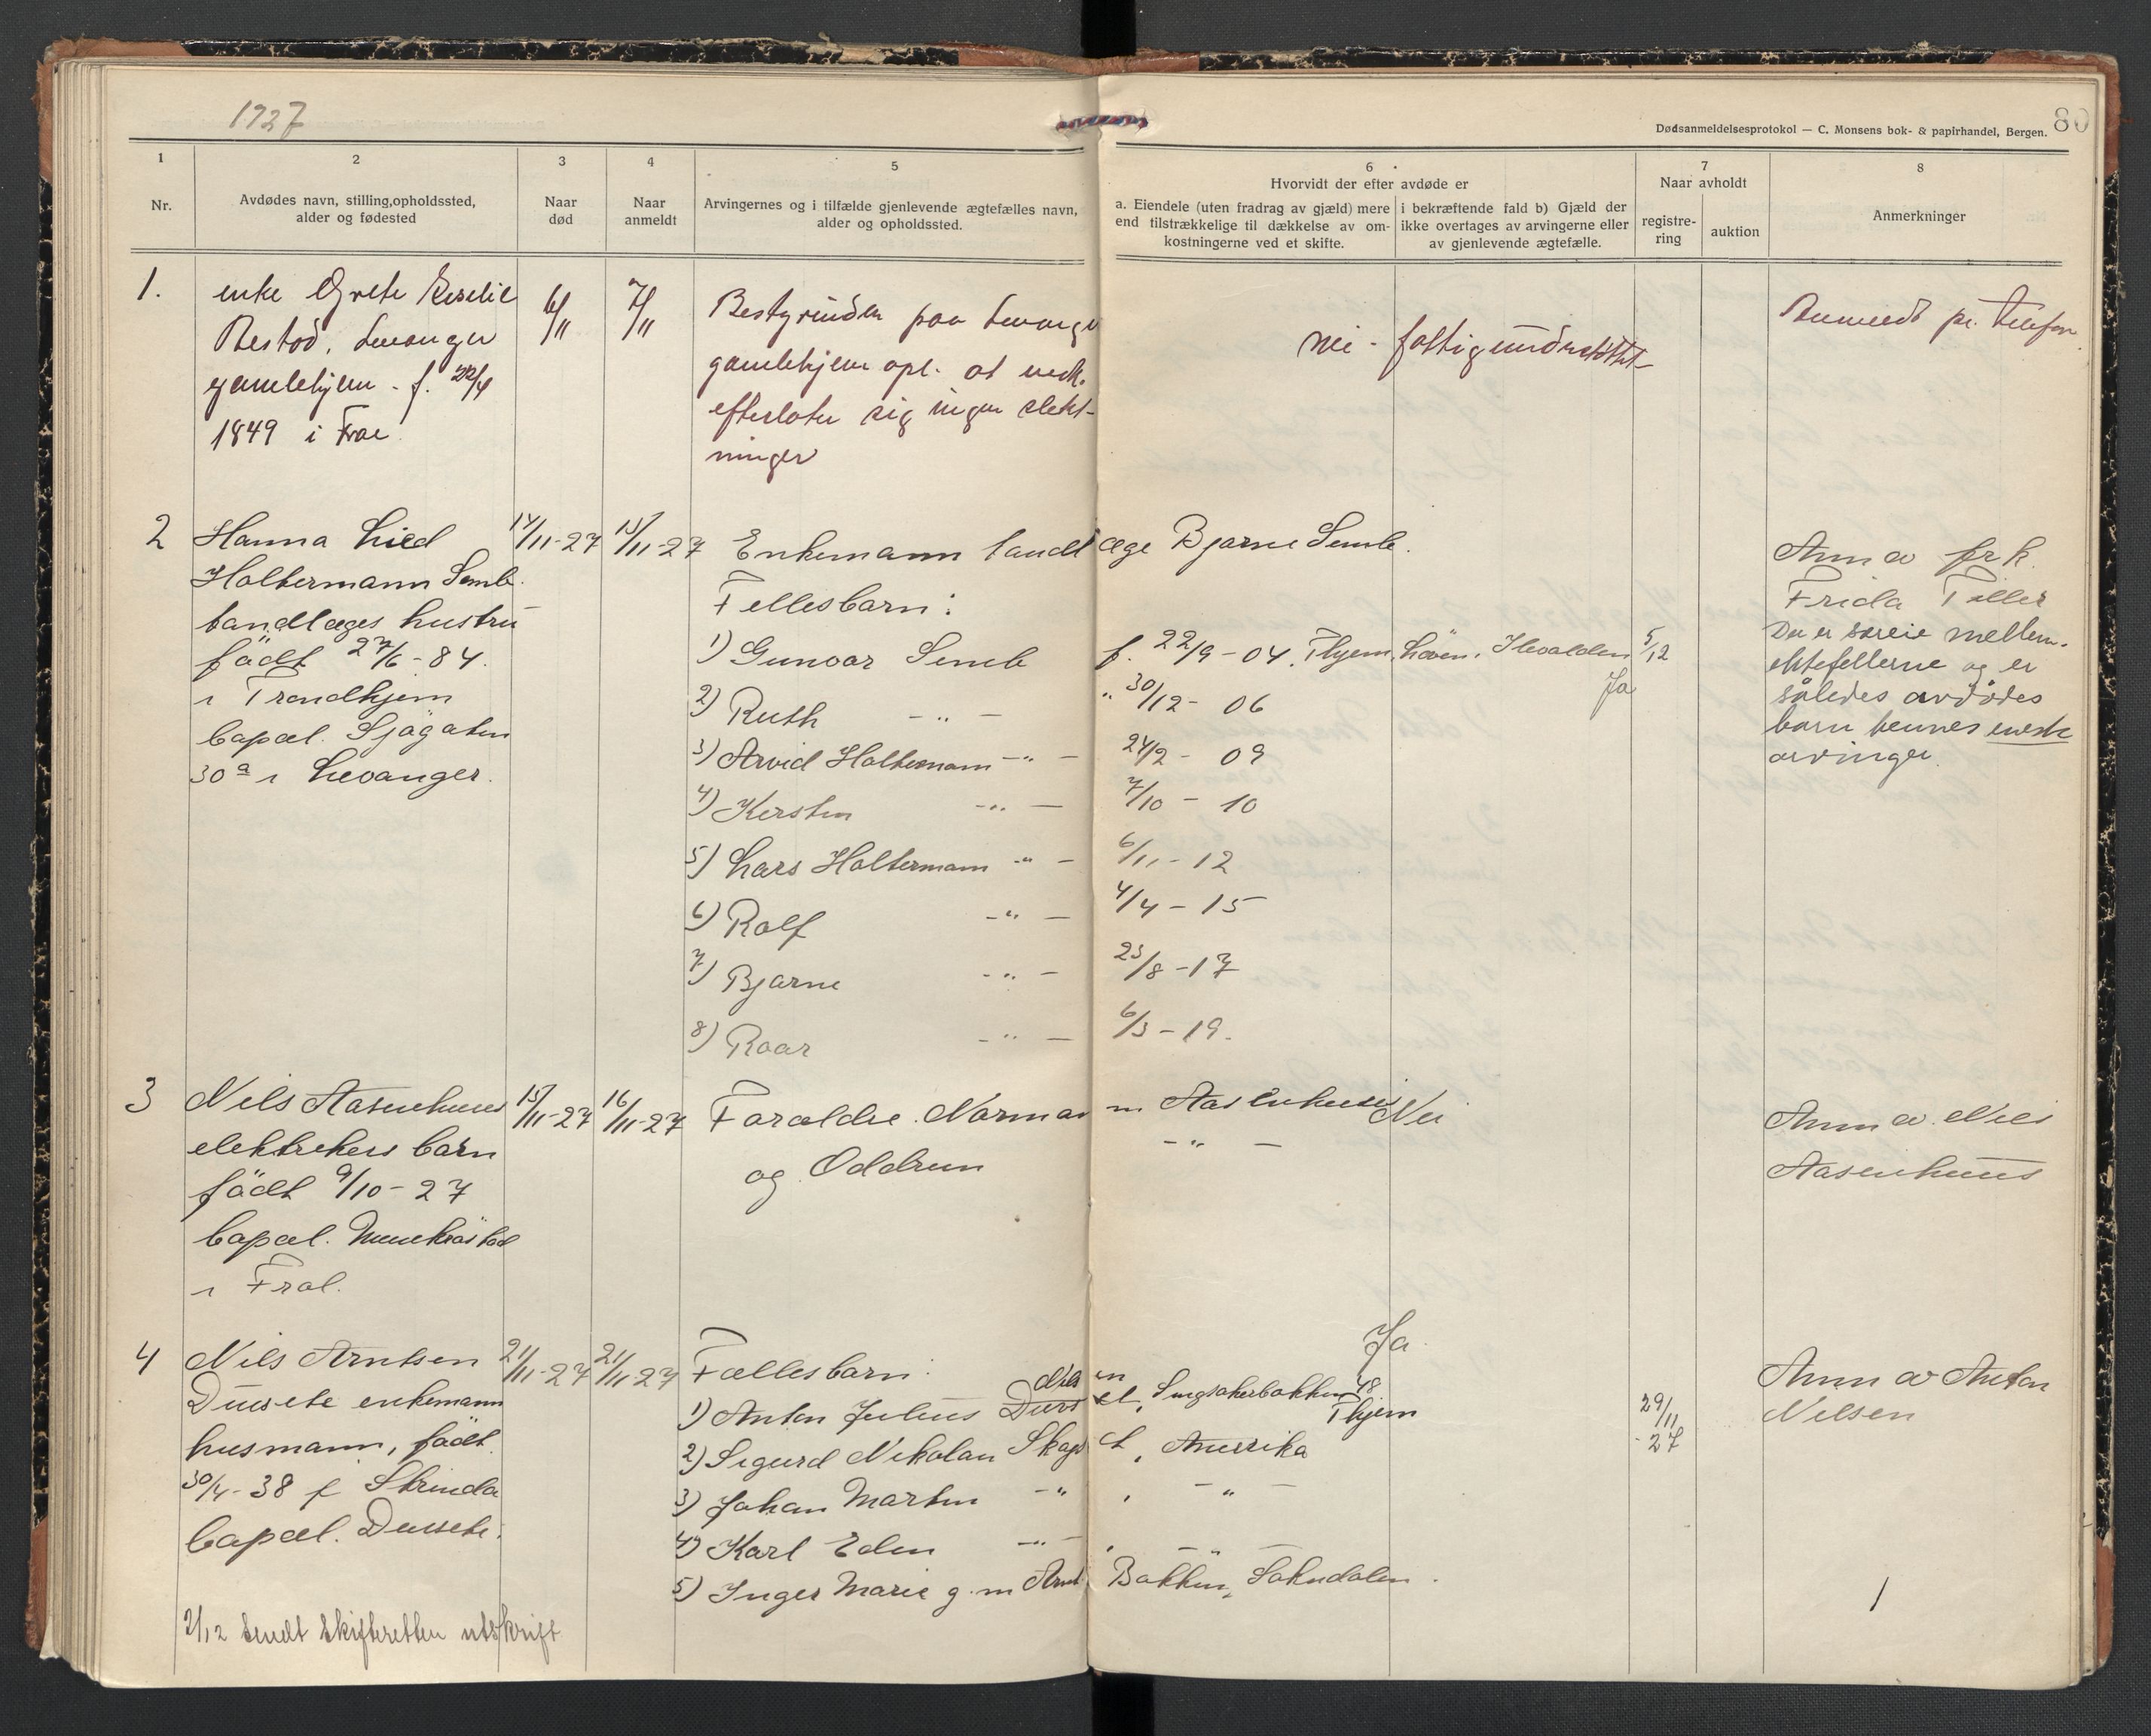 1927
80
Dødsanmeldelsesprotokol — C. Monsens bok- & papirhandel, Bergen.
1
Nr.
2
Avdødes navn, stilling, opholdssted,
alder og fødested
3
Naar
død
4
Naar
anmeldt
5
Arvingernes og i tilfælde gjenlevende ægtefælles navn,
alder og opholdssted.
6
Hvorvidt der efter avdøde er
a. Eiendele (uten fradrag av gjæld) mere
end tilstrækkelige til dækkelse av om-
kostningerne ved et skifte.
i bekræftende fald b) Gjæld der
ikke overtages av arvingerne eller
av gjenlevende ægtefælle.
7
Naar avholdt
registre-
ring
auktion
8
Anmerkninger
1.
enke Grete
Levanger
gamlehjem - f. 22/4
1849 i Frol
6/11
7/11
Bestyrinden paa Levanger
gamlehjem opl. at nevnte
efterlater sig ingen slekt-
ninger
nei - fattigunderstøttet
Anmeldt pr. telefon
2
Hanna Lied
Holtermann Semb
tandlæges hustru
födt 27/6-84.
i Trondhjem
bopæl. Sjøgaten
30a i Levanger.
14/11-27
15/11-27
Enkemann tandlæge Bjarne Semb.
Fellesbarn:
1) Gunvor Semb f. 22/9-04. Thjem, Löven.
2) Ruth -"- " 30/12-06
3) Arvid Holtermann -"- 24/2-09
4) Kersten -"- 7/10-10
5) Lars Holtermann -"- 6/11-12
6) Rolf -"- 4/4-15
7) Bjarne -"- 23/8-17
8) Roar -"- 6/3-19.
Ja
5/12
Anm av frk.
Frida Tiller
Du er særeie mellem
ektefellerne og er
således avdødes
barn hennes eneste
arvinger.
3
Nils Aasenhuus
elektrikers barn
födt 9/10-27
bopæl.
i Frol.
15/11-27
16/11-27
Foreldre. Norman Aasenhuus
og Oddrun -"-
Nei
Anm av. Nils
Aasenhuus
4
Nils Arntsen
enkemann
husmann, födt
30/4-38 f Strinda
bopæl.
21/11-27
21/11-27
Fællesbarn:
1) Anton Julius Nilsen, Singsakerbakken 48
Thjem
2) Sigurd Nikolai, Amerika
3) Johan Martin -" , -"-
4) Karl Edin -"- , -"-
5) Inger Marie g. m Arnt Bakken, Soknedalen.
Ja.
29/11
-27
Anm av Anton
Nilsen
2/12 sendt skifteretten utskrift